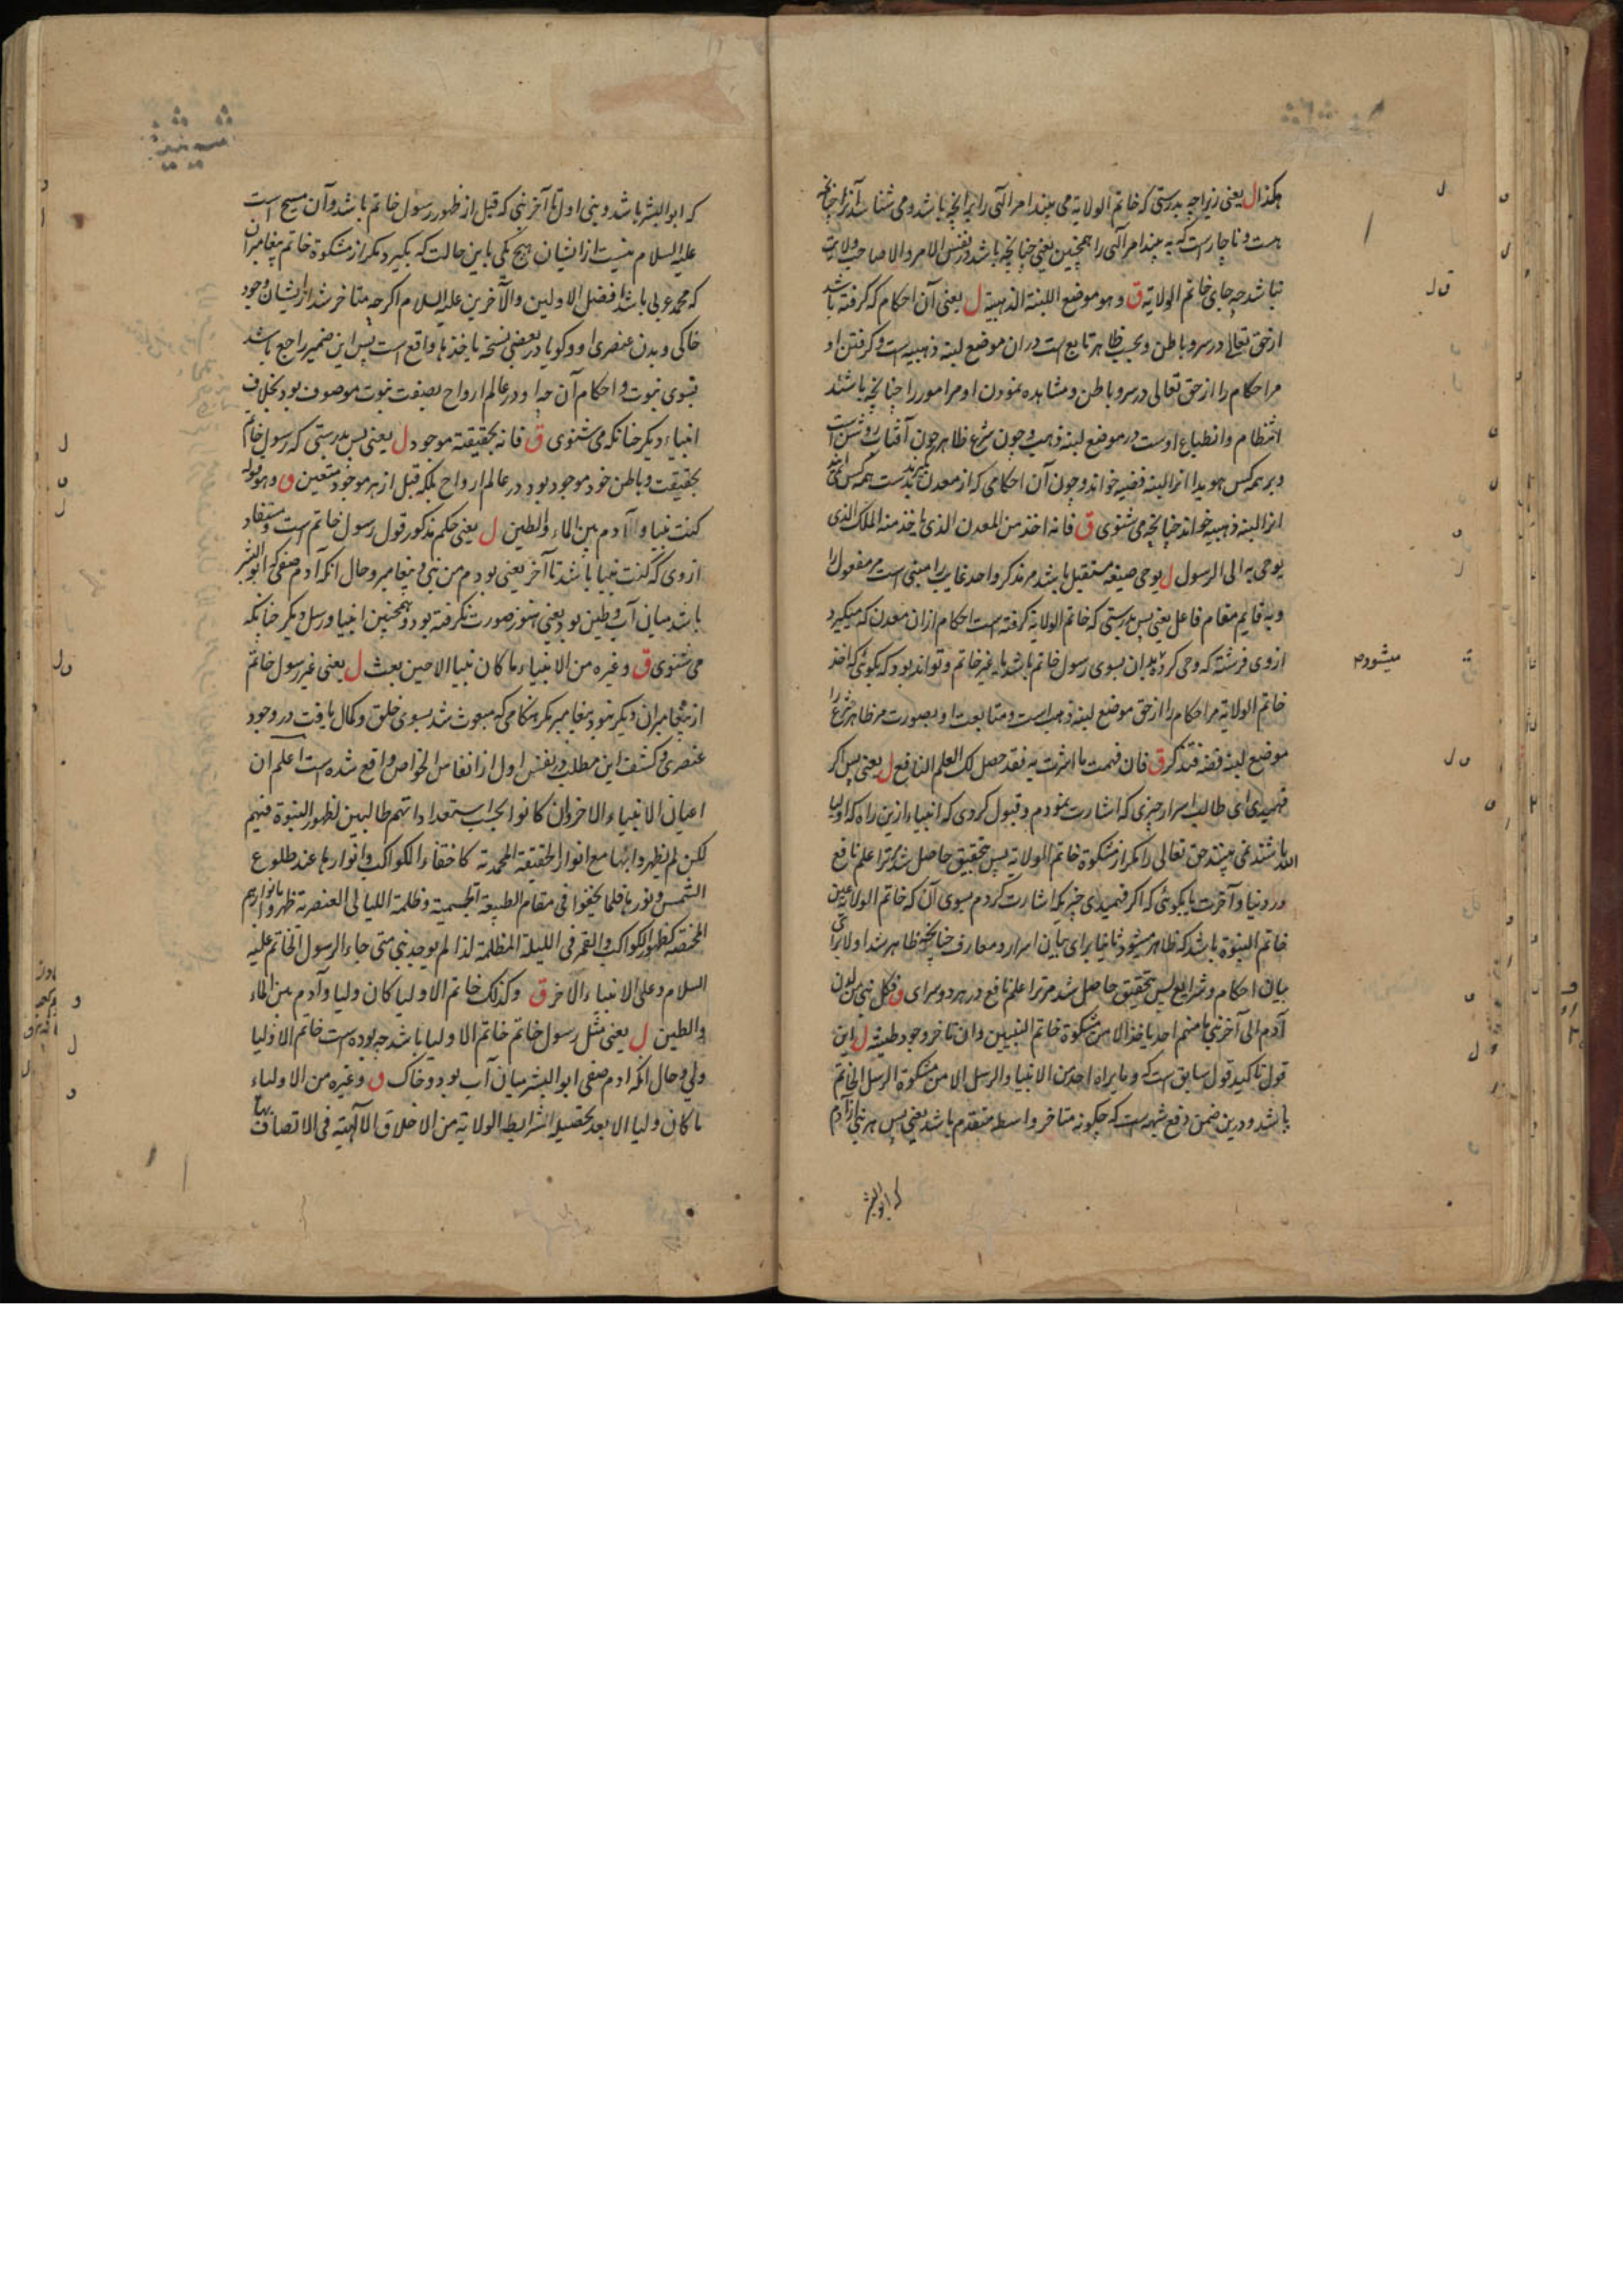 هکذا ل یعنی زیرا چه بدرستی که خاتم الولایة می بیند امر الهی را برانچه باشد و می شناسد آنرا چنانچه
هست و ناچارست که به بیند امر الهی را همچنین یعنی چنانچه باشد در نفس الامر و الا صاحب ولایت
نباشد چه جای خاتم الولایة ق و هو موضع اللبنة الذهبیة ل یعنی آن احکام که گرفته باشد
از حق تعالی در سر و باطن و بحسب ظاهر تابع است در ان موضع لبنه ذهبیه است و کرفتن او
مر احکام را از حق تعالی در سر و باطن و مشاهده نمودن او مر امور را چنانچه باشند
انتظام و انطباع اوست در موضع لبنه ذهب و چون شرع ظاهر چون آفتاب روشن است
و بر همه کس هویدا انرا لبنه فضیه خواند و چون آن احکامی که از معدن گیرند نه بدست همه کس
انرا لبنه ذهبیه خواند چنانچه می شنوی ق فانه اخذ من المعدن الذی یاخذ منه الملک الذی
یوحی به الی الرسول ل یوحی صیغه مستقبل باشد مر مذکر واحد غایب را مبنی است مر مفعول را
و به قایم مقام فاعل یعنی پس بدرستی که خاتم الولایة کرفته است احکام از ان معدن که میکیرد
ازوی فرشته که وحی کرده شد بدان بسوی رسول خاتم باشد یا غیر خاتم و تواند بود که بکوئی که اخذ
میشود
خاتم الولایة مر احکام را از حق موضع لبنه ذهب است و متابعت او بصورت مر ظاهر شرع را
موضع لبنه فضه فتذکر ق فان فهمت ما اشرت به فقد حصل لک العلم النافع ل یعنی پس اکر
فهمیدی ای طالب اسرار چیزی که اشارت نمودم و قبول کردی که انبیا ازین راه که اولیا
الله باشند نمی بینند حق تعالی را مکر از مشکوة خاتم الولایة پس بتحقیق حاصل شد مر ترا علم نافع
در دنیا و آخرت یا بکوئی که اکر فهمیدی چیزیکه اشارت کردم بسوی آن که خاتم الولایة عین
خاتم النبوة باشد که ظاهر میشود ثانیا برای بیان اسرار و معارف چنانچه ظاهر شد اولا برای
بیان احکام و شرایع پس بتحقیق حاصل شد مر ترا علم نافع در هر دو سرای ق فکل نبی من لدن
آدم الی آخر نبی ما منهم احد یاخذ الا من مشکوة خاتم النبیین و ان تاخر وجود طینته ل این
قول تاکید قول سابق است که و ما یراه احد من الانبیا و الرسل الا من مشکوة الرسل الخاتم
باشد و درین ضمن دفع شبهه است که چکونه متاخر واسطه متقدم باشد یعنی پس هر نبی از آدم
که ابو البشر
که ابو البشر باشد و نبی اول تا آخر نبی که قبل از ظهور رسول خاتم باشد و آن مسیح است
علیه السلام نیست از ایشان هیچ یکی باین حالت که بکیرد مکر از مشکوة خاتم پیغامبران
که محمد عربی باشد افضل الاولین و الآخرین علیه السلام اکرچه متاخر شد از ایشان وجود
خاکی و بدن عنصری او و کویا در بعضی نسخه یاخذها واقع است پس این ضمیر راجع باشد
بسوی نبوت و احکام آن چه او در عالم ارواح بصفت نبوت موصوف بود بخلاف
انبیاء دیکر چنانکه می شنوی ق فانه بحقیقته موجود ل یعنی پس بدرستی که رسول خاتم
بحقیقت و باطن خود موجود بود در عالم ارواح بلکه قبل از هر موجود متعین ق و هو قوله
کنت نبیا و آدم بین الماء و الطین ل یعنی حکم مذکور قول رسول خاتم است و مستفاد
ازوی که کنت نبیا باشد تا آخر یعنی بودم من نبی و پیغامبر و حال انکه آدم صفی که ابو البشر
باشد میان آب و طین بود یعنی هنوز صورت نکرفته بود و همچنین انبیا و رسل دیکر چنانکه
می شنوی ق و غیره من الانبیاء ما کان نبیا الا حین بعث ل یعنی غیر رسول خاتم
از پیغامبران دیکر نبود پیغامبر مکر هنکامی که مبعوث شد بسوی خلق و کمال یافت در وجود
عنصری و کشف این مطلب در نفس اول از انفاس الخواص واقع شده است اعلم ان
اعیان الانبیاء الاخر و ان کانوا بحسب استعداداتهم طالبین لظهور النبوة فیهم
لکن لم یظهروا بها مع انوار الحقیقة المحمدیة کاختفاء الکواکب و انوارها عند طلوع
الشمس و نورها فلما یحیفوا فی مقام الطبیعة الجسمیة و ظلمة اللیالی العنصریة ظهروا بانوارهم
المختصة کظهور الکواکب و القمر فی اللیلة المظلمة لذا لم یوجد نبی متی جاء الرسول الخاتم علیه
السلام و علی الانبیاء الآخر ق و کذلک خاتم الاولیا کان ولیا و آدم بین الماء
و الطین ل یعنی مثل رسول خاتم خاتم الاولیا باشد چه بوده است خاتم الاولیا
ولی و حال انکه ادم صفی ابو البشر میان آب بود و خاک ق و غیره من الاولیاء
ما کان ولیا الا بعد تحصیله الشرایط الولایة من الاخلاق الالهیة فی الاتصاف بها